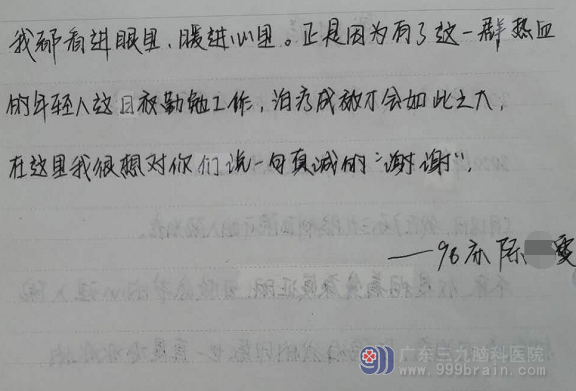 我都看进眼里、暖进心里。正是因为有了这一群热血
的年轻人这日夜勤勉工作，治疗成效才会如此之大，
在这里我很想对你们说一句真诚的“谢谢”。
——96床 陈
广东三九脑科医院
www.999brain.com